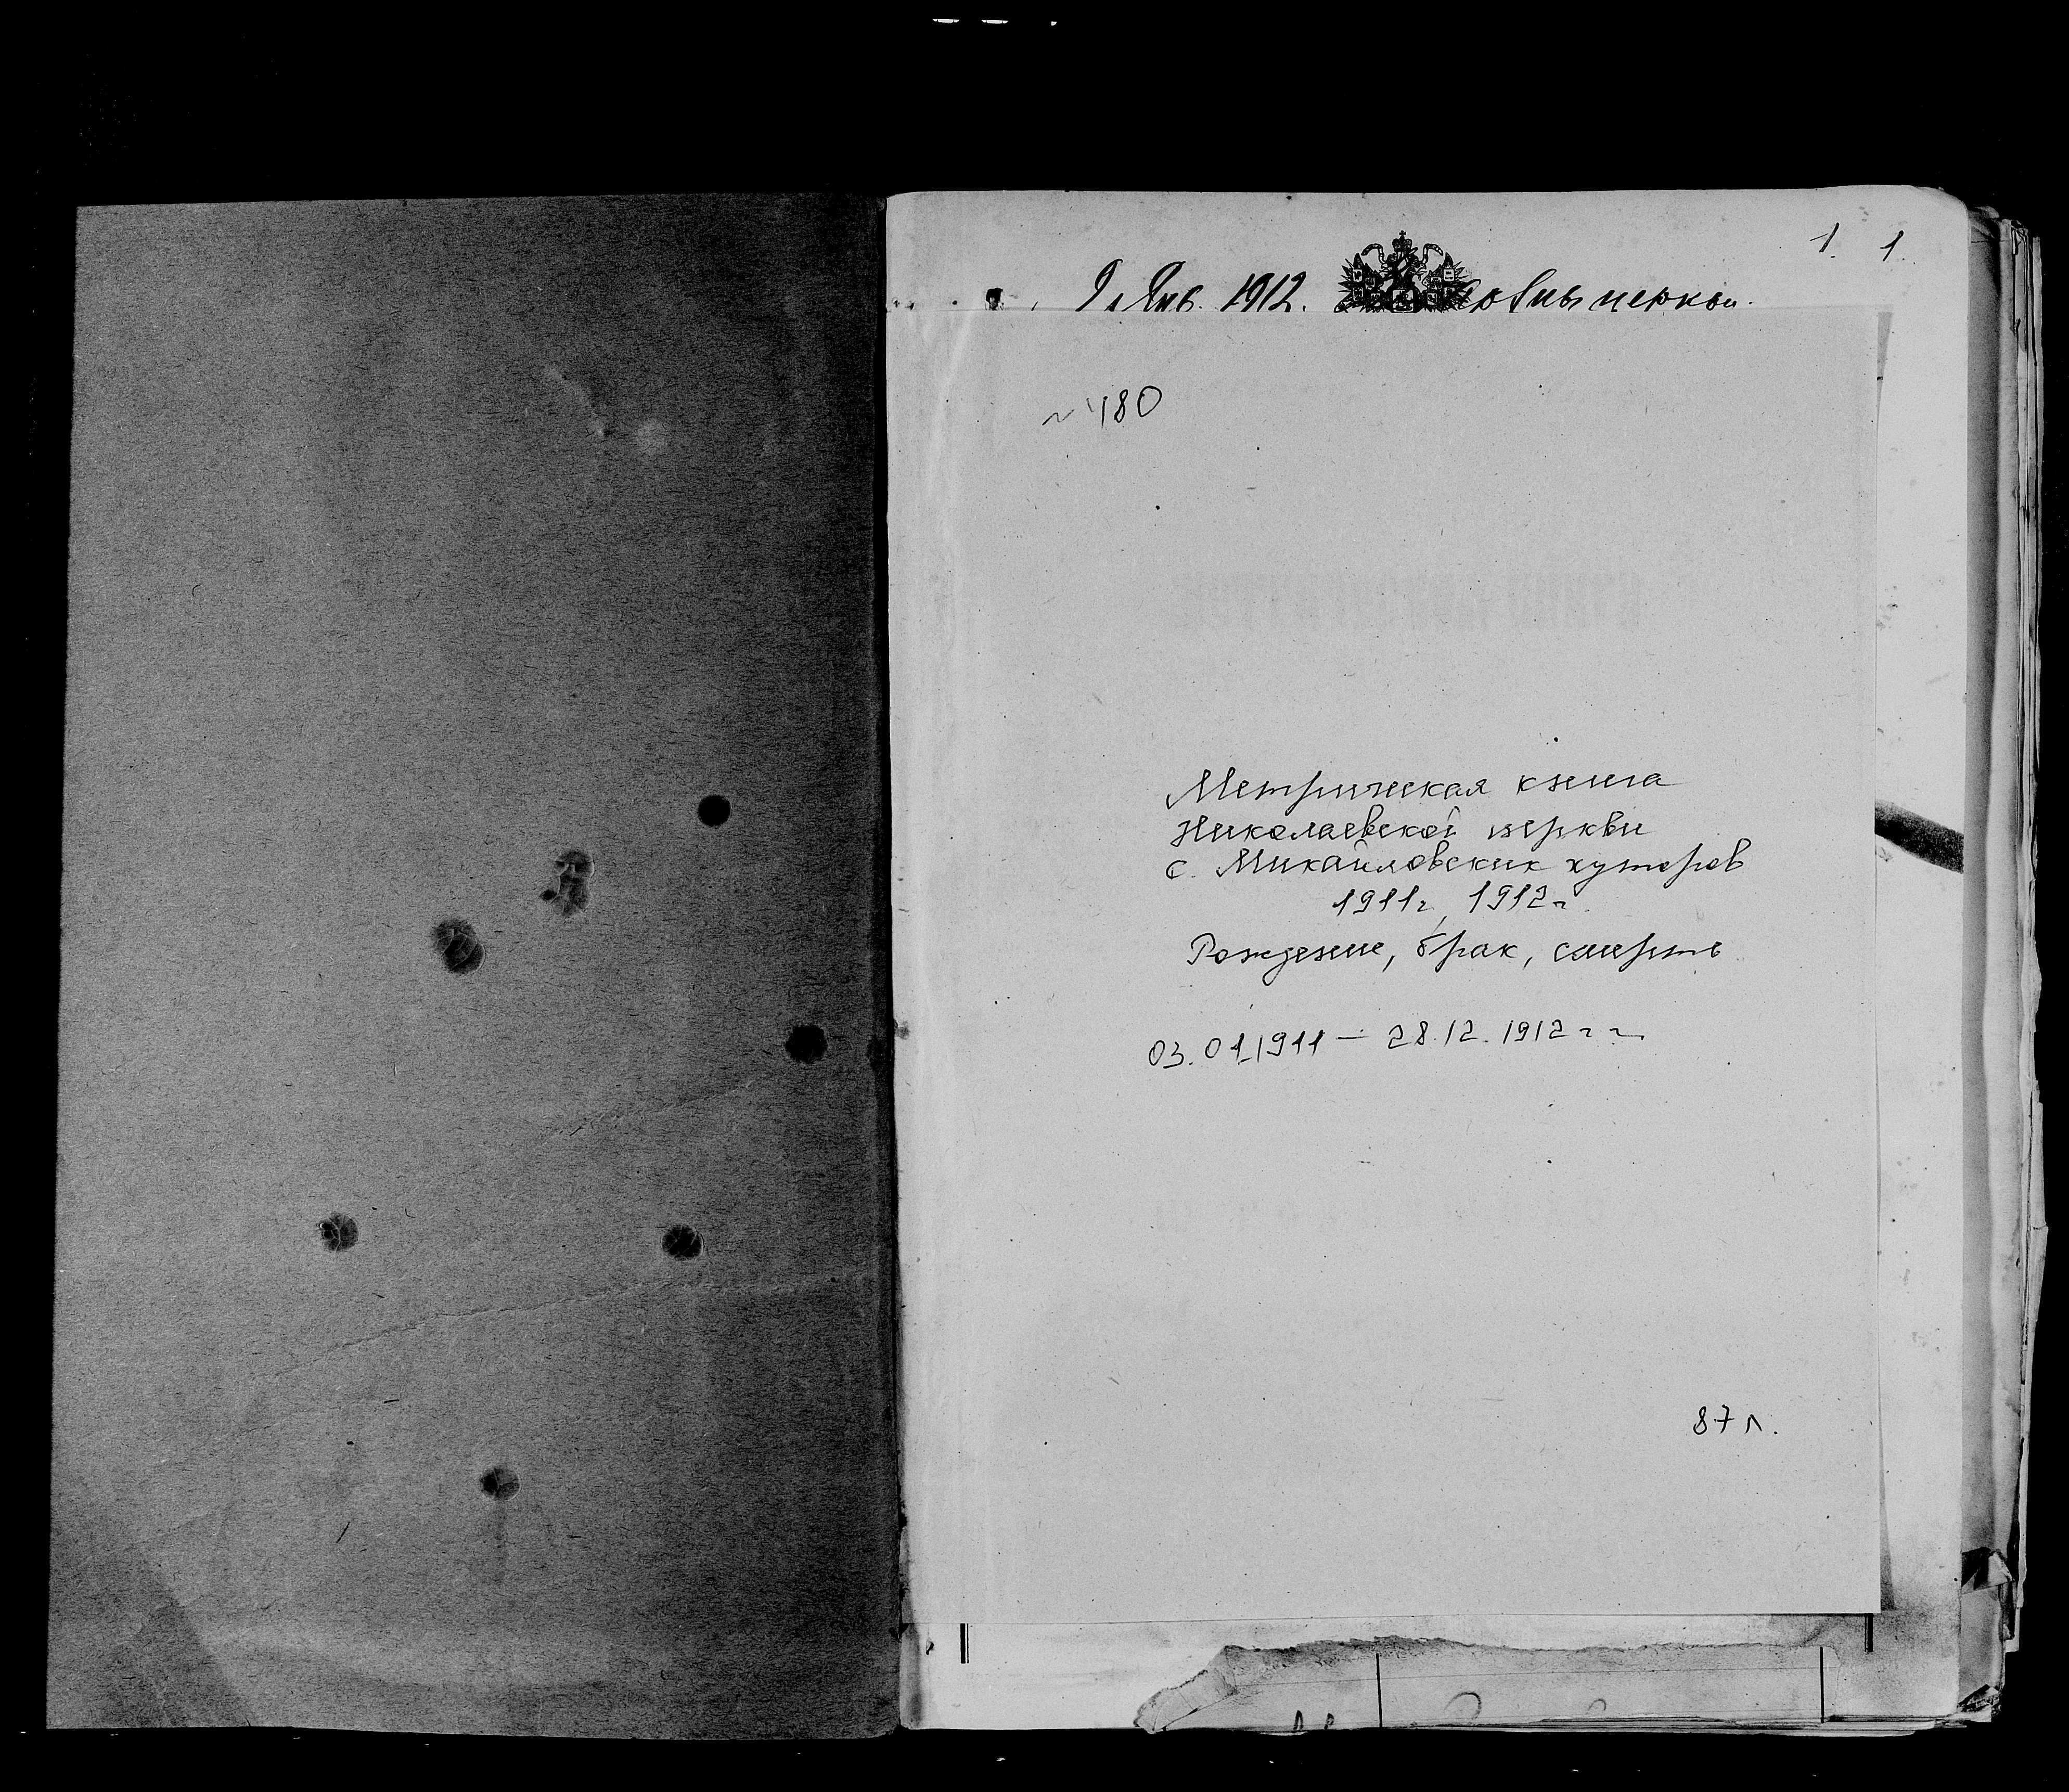 1. 1
1912. церкви.
№ 180
Метрическая книга
Николаевской церкви
с. Михайловских хуторов
1911г, 1912г
Рождение, брак, смерть
03.01.1911 — 28.12.1912 г г
87 л.